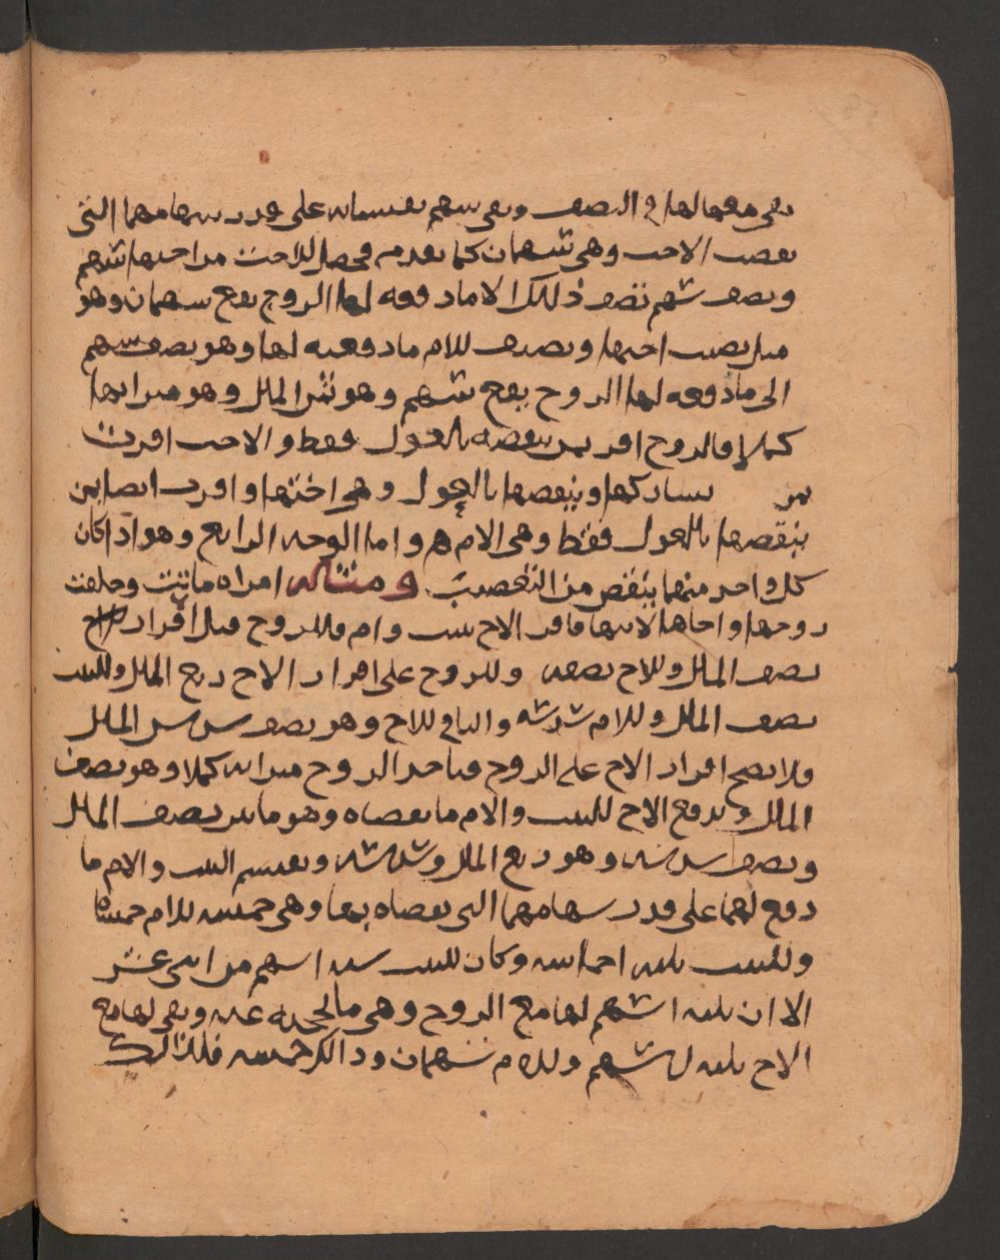 بقي معهما لها في النصف وبقي سهم يقسمانه على قدر سهامهما التي
نقصت الاخت وهي سهمان كما تقدم فحصل للاخت من اختها سهم
ونصف سهم نصف ذلك الا ما دفعه لها الزوج بقي سهمان وهو
مثل نصيب اختها ونصيف للام ما دفعته لها وهو نصف سهم
الى ما دفعه لها الزوج يقع سهم وهو ثمن المال وهو ميراثها
كملا فالزوج اقر بمن ينقصه بالعول فقط والاخت اقرت
بمن يشاركها وينقصها بالعول وهي اختها واقرت ايضا بمن
ينقصها بالعول فقط وهي الام واما الوجه الرابع وهو اذا كان
كل واحد منهما ينقص من التعصيب ومثاله امراة ماتت وخلفت
زوجها واخاها لابيها فاقر الاخ ببنت وام فللزوج قبل اقرار الاخ
نصف المال وللاخ نصفه وللزوج على اقرار الاخ ربع المال وللبنت
نصف المال وللام سدسه والباقي للاخ وهو نصف سدس المال
فلا يصح اقرار الاخ على الزوج فياخذ الزوج ميراثه كملا وهو نصف
المال ويدفع الاخ للبنت والام ما نقصاه وهو ما بين نصف المال
ونصف سدسه وهو ربع المال وسدسه ويقسم البنت والام ما
دفع لهما على قدر سهامهما التي نقصاه بها وهي خمسة للام خمساها
وللبنت ثلاثة اخماسه وكان للبنت ستة اسهم من اثني عشر
الا ان ثلاثة اسهم لها مع الزوج وهي ما لحجدته عنه وبقي لها مع
الاخ ثلاثة اسهم وللام سهمان وذالك خمسة فلذالك